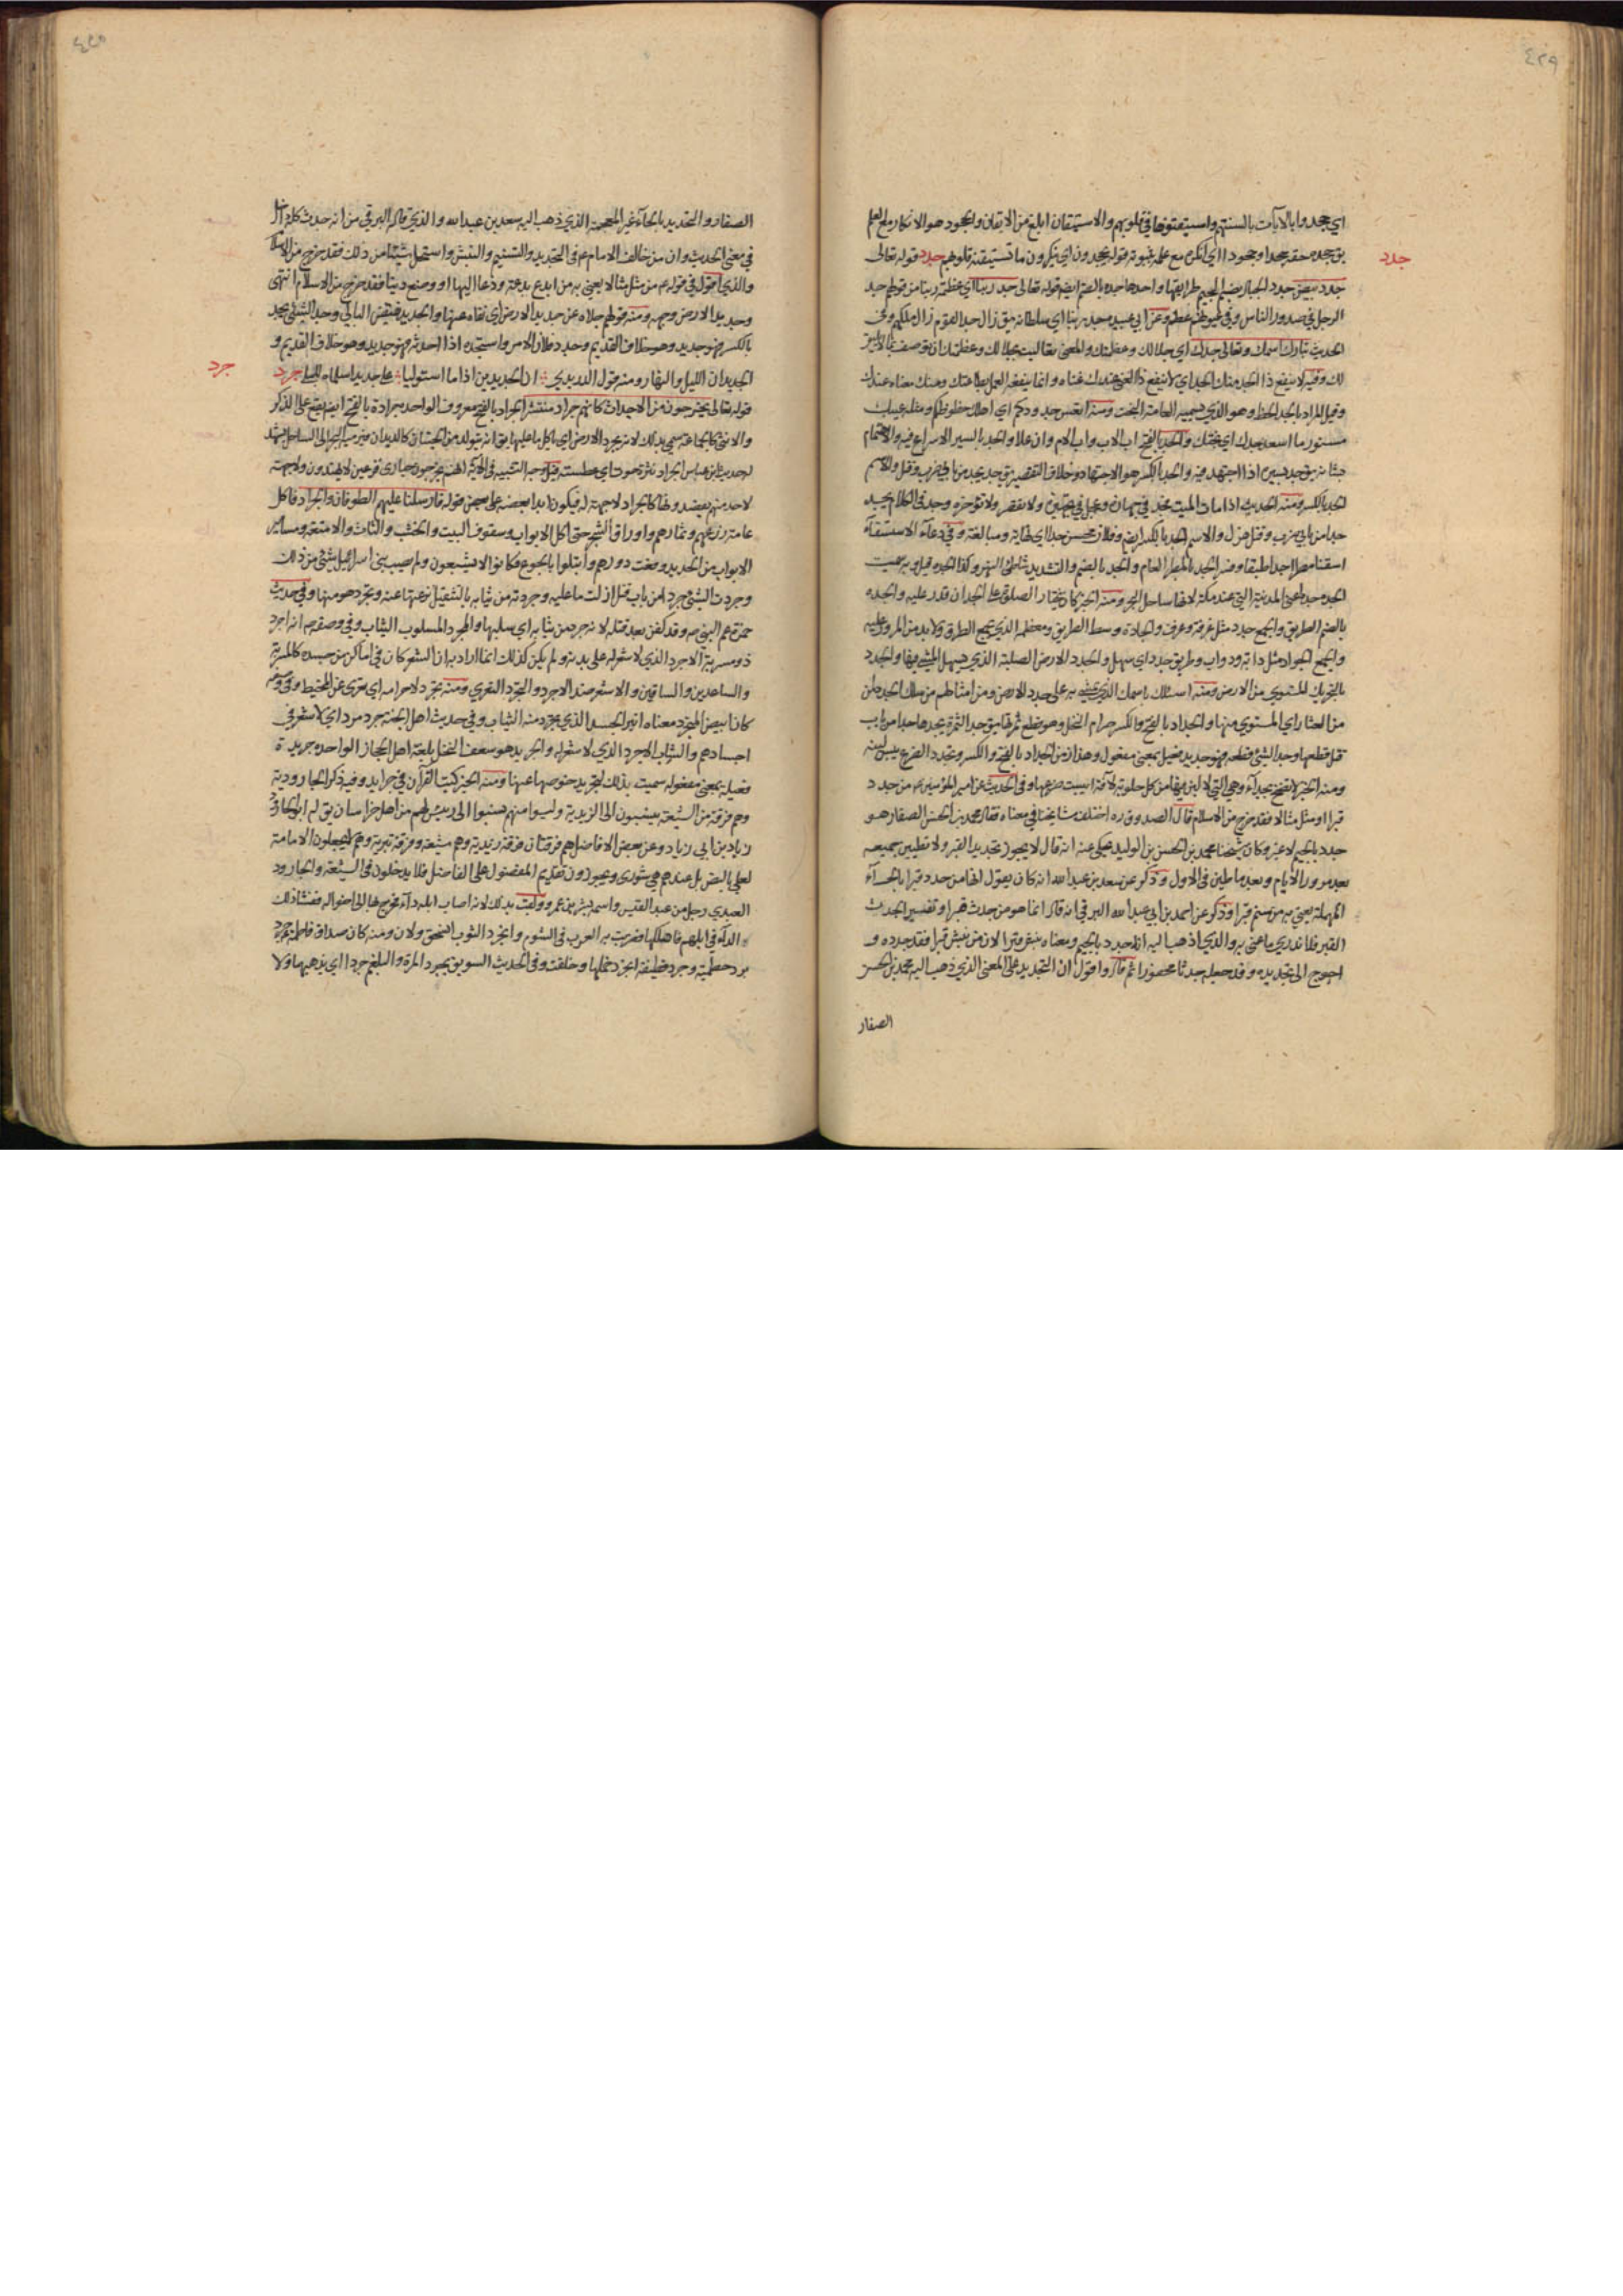 ٤٢٩
اي جحدوا بالايآت بالسنتهم واستيقنوها في قلوبهم والاستيقان ابلغ من الايقان والجحود هو الانكار مع العلم
يق جحده حقه جحدا وجحودا اي انكره مع علمه بثبوته قوله يجحدون اي ينكرون ما تستيقنه قلوبهم جدد قوله تعالى
جدد
جدد بيض جدد الجبال بضم الجيم طرايقها واحدها جده بالضم ايضا قوله تعالى جد ربنا اي عظمة ربنا من قولهم جد
الرجل في صدور الناس وفي عيونهم عظم وعن ابي عبيده جد ربنا اي سلطانه يق زال جد القوم زال ملكهم وفي
الحديث تبارك اسمك وتعالى جدك اي جلالك وعظمتك والمعنى تعاليت بجلالك وعظمتك ان توصف بما لا يليق
لك وفيه لا ينفع ذا الجد منك الجد اي لا ينفع ذا الغنى عندك غناه وانما ينفعه العمل بطاعتك ومنك معناه عندك
وقيل المراد بالجد الحظ وهو الذي تسميه العامة البخت ومنه اتعس جدودكم اي اهلك حظوظكم ومثله عيبك
مستور ما اسعد جدك اي بختك والجد بالفتح اب الاب واب الام وان علا والجد بالسير الاسراع فيه والاهتمام
بشانه يق جد بسيره اذا اجتهد فيه والجد بالكسر هو الاجتهاد وخلاف التقصير يق جد يجد من بابي ضرب وقتل والاسم
الجد بالكسر ومنه الحديث اذا مات الميت فجد في جهازه وعجل في تجهيزه ولا تقصر ولا تؤخره وجد في الكلام يجد
جدا من باب ضرب وقتل هزل والاسم الجد بالكسر ايضا وفلان محسن جدا اي نهاية ومبالغة وفي دعاء الاستسقآء
اسقنا مطرا جدا طبقا وفسر الجد بالمطر العام والجد بالضم والتشديد شاطئ النهر وكذا الجده قيل وبه سميت
الجده جدة اعني المدينة التي عند مكة لانها ساحل البحر ومنه الخبر كان يختار الصلوة على الجد ان قدر عليه والجده
بالضم الطريق والجمع جدد مثل غرفة وغرف والجادة وسط الطريق ومعظمه الذي يجمع الطرق ولا بد من المرور عليه
والجمع الجواد مثل دابة ودواب وطريق جدد اي سهل والجدد الارض الصلبة الذي يسهل المشي فيها والجدد
بالتحريك المستوي من الارض ومنه اسئلك باسمك الذي يمشي به على جدد الارض ومن امثالهم من سلك الجدد امن
من العثار اي المستوي منها والجداد بالفتح والكسر صرام النخل وهو قطع ثمرها يق جد الثمرة يجدها جدا من باب
قتل قطعها وجد الشئ قطعه فهو جديد فعيل بمعنى مفعول وهذا زمن الجداد بالفتح والكسر وتجدد الضرع يبس لبنه
ومنه الخبر لا تضح بجدآء وهي التي لا لبن فيها من كل حلوبة لآفة ايبست ضرعها وفي الحديث عن امير المؤمنين ع من جدد
قبرا او مثل مثالا فقد خرج من الاسلام قال الصدوق ره اختلف مشايخنا في معناه فقال محمد بن الحسن الصفار هو
جدد بالجيم لا غير وكان شيخنا محمد بن الحسن بن الوليد يحكي عنه انه قال لا يجوز تجديد القبر ولا تطيين جميعه
بعد مرور الايام وبعد ما طين في الاول وذكر عن سعد بن عبد الله انه كان يقول انما من حدد قبرا بالحآء
المهملة يعني به من سنم قبرا وذكر عن احمد بن ابي عبد الله البرقي انه قال انما هو من جدث قبرا وتفسير الجدث
القبر فلا ندري ما عنى به والذي اذهب اليه انه جدد بالجيم ومعناه نبش قبرا لان من نبش قبرا فقد جدده و
احوج الى تجديده وقد جعله جدثا محفورا ثم قال واقول ان التجديد على المعنى الذي ذهب اليه محمد بن الحسن
الصفار
٤٣٠
الصفار والتحديد بالحآء غير المعجمة الذي ذهب اليه سعد بن عبد الله والذي قاله البرقي من انه جدث كله داخل
في معنى الحديث وان من خالف الامام ع في التجديد والتسنيم والنبش واستحل شيئا من ذلك فقد خرج من الاسلام
والذي اقول في قوله ع من مثل مثالا يعني به من ابدع بدعة ودعا اليها او وضع دينا فقد خرج من الاسلام انتهى
وجديد الارض وجهه ومنه قولهم جلاه عن جديد الارض اي نفاه عنها والجديد نقيض البالي وجد الشئ يجد
بالكسر فهو جديد وهو خلاف القديم وجدد فلان الامر واستجده اذا احدثه فهو جديد وهو خلاف القديم و
الجديدان الليل والنهار ومنه قول الدريدي ان الجديدين اذا ما استوليا على جديد اسلماه للبلى جرد
جرد
قوله تعالى يخرجون من الاجداث كانهم جراد منتشر الجراد بالفتح معروف الواحده جرادة بالفتح ايضا يقع على الذكر
والانثى كالحمامة سمي بذلك لانه يجرد الارض اي ياكل ما عليها يق انه يتولد من الحيتان كالديدان فيرميه البحر الى الساحل يشهد
لحديث ابن عباس الجراد نثرة حوت اي عطسته قيل وجه التشبيه في الآية انهم يخرجون حيارى فزعين لا يهتدون ولا جهة
لاحد منهم يقصدونها كالجراد لا جهة له فيكون ابدا بعضه على بعض قوله فارسلنا عليهم الطوفان والجراد فاكل
عامة زرعهم وثمارهم واوراق الشجر حتى اكل الابواب وسقوف البيت والخشب والثياب والامتعة ومسامير
الابواب من الحديد وقعت دورهم وابتلوا بالجوع فكانوا لا يشبعون ولم يصب بني اسرائيل شئ من ذلك
وجردت الشئ جردا من باب قتل ازلت ما عليه وجردته من ثيابه بالتثقيل نزعتها عنه وتجرد هو منها وفي حديث
حمزة عم النبي ص وقد كفن بعد قتله لانه جرد من ثيابه اي سلبها والمجرد المسلوب الثياب وفي وصفه ص انه اجرد
ذو مسربة الاجرد الذي لا شعر له على بدنه ولم يكن كذلك انما اراد به ان الشعر كان في اماكن من جسده كالمسربة
والساعدين والساقين والاشعر ضد الاجرد والتجرد التعري ومنه تجرد لاحرامه اي تعرى عن المخيط وفي وصفه
كان ابيض المتجرد معناه انير الجسد الذي تجرد منه الثياب وفي حديث اهل الجنة جرد مرد اي لا شعر في
اجسادهم والشاب الاجرد الذي لا شعر له والجريد هو سعف النخل بلغة اهل الحجاز الواحده جريدة
فعيلة بمعنى مفعوله سميت بذلك لتجريد خوصها عنها ومنه الخبر كتب القرآن في جرايد وفيه ذكر الجارودية
وهم فرقة من الشيعة ينسبون الى الزيدية وليسوا منهم نسبوا الى رئيس لهم من اهل خراسان يق له ابو الجارود
زياد بن ابي زياد وعن بعض الافاضل هم فرقتان فرقة زيدية وهم شيعة وفرقة بترية وهم لا يجعلون الامامة
لعلي بالنص بل عندهم هي شورى ويجوزون تقديم المفضول على الفاضل فلا يدخلون في الشيعة والجارود
العبدي رجل من عبد القيس واسمه بشر بن عمرو ولقب بذلك لانه اصاب ابله دآء فخرج بها الى اخواله ففشا ذلك
الدآء في ابلهم فاهلكها فضربت به العرب في الشوم وانجرد الثوب انسحق ولان ومنه كان صداق فاطمة جرد
برد حطمية وجرد قطيفة انجرد خملها وخلقت وفي الحديث السويق يجرد المرة والبلغم جردا اي يذهبها ولا